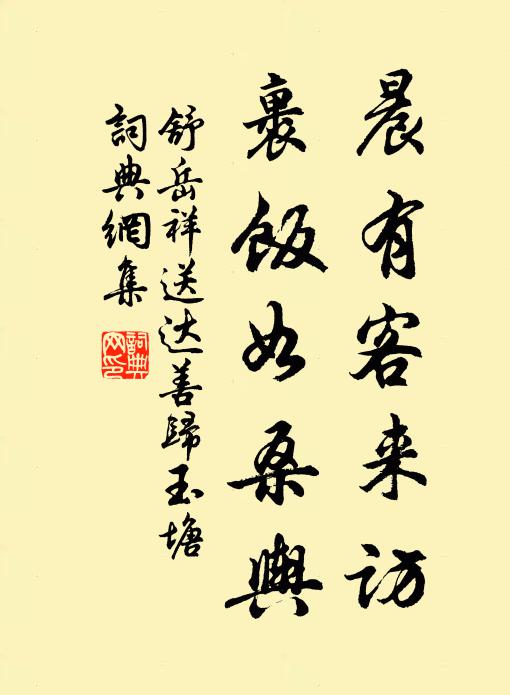 晨有客来访
裹饭如桑舆
舒岳祥送达善歸玉塘
詞典網集
詞典網印